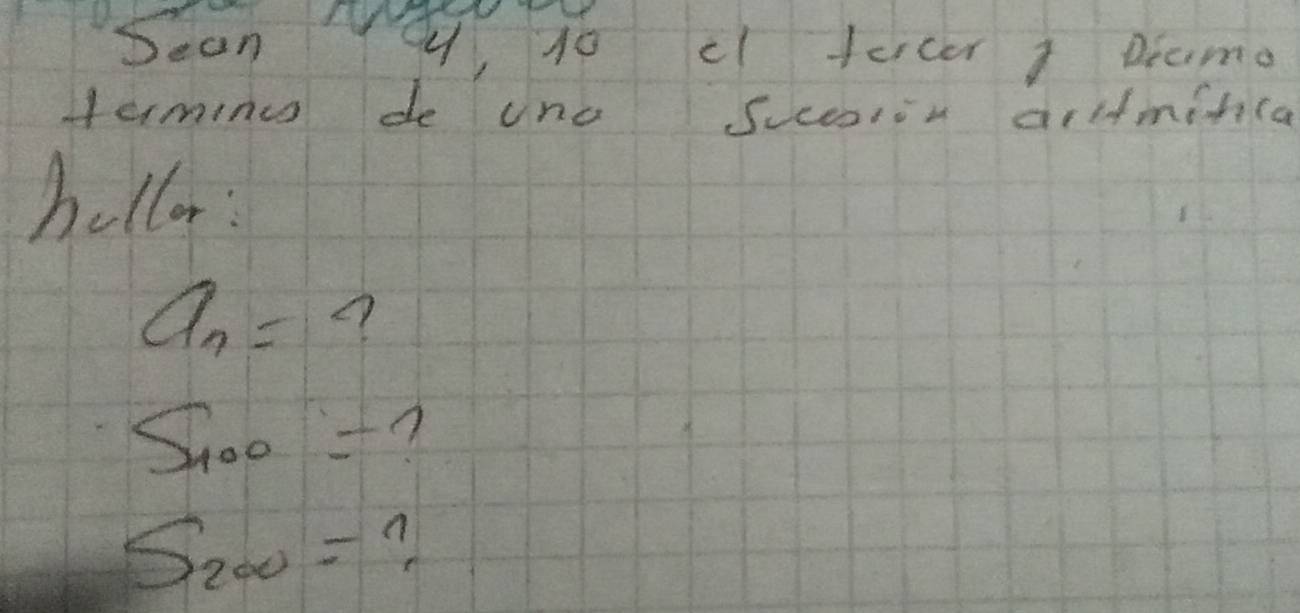 Sean 4, 10 el tercer y Décimo
terminos de una Sucesión aritmética
hallar:
an = ?
S100 = ?
S200 = ?